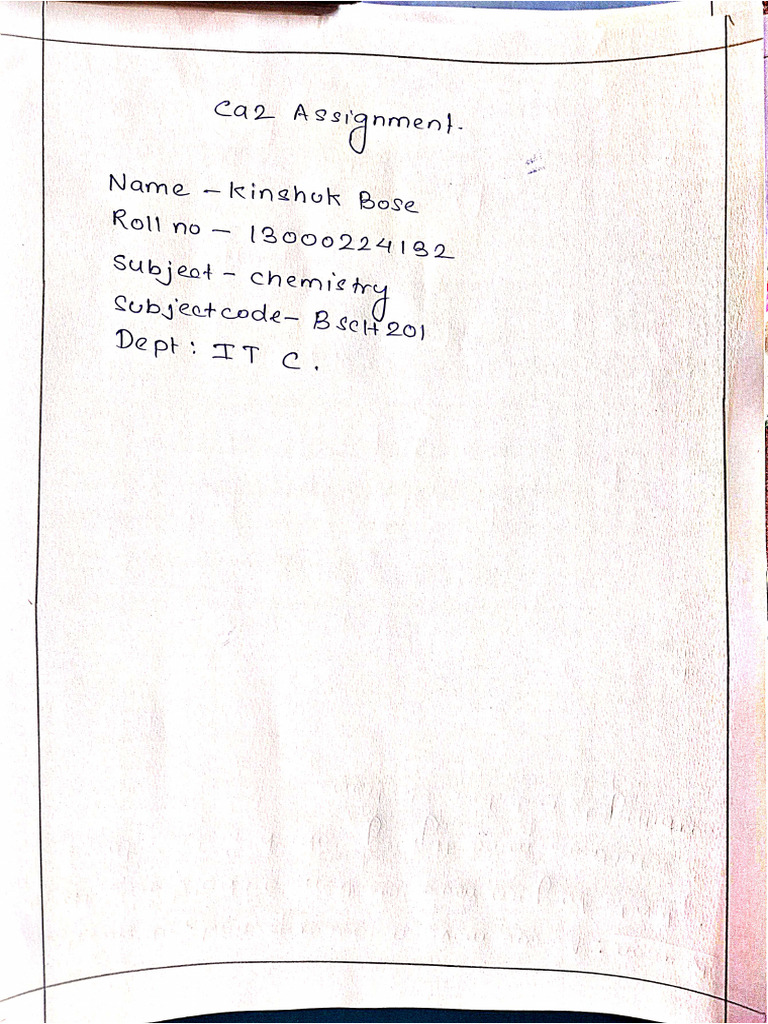 Ca2 Assignment.
Name - Kinshuk Bose
Roll no - 13000224132
Subject - chemistry
Subjectcode- BSCH201
Dept: IT C.